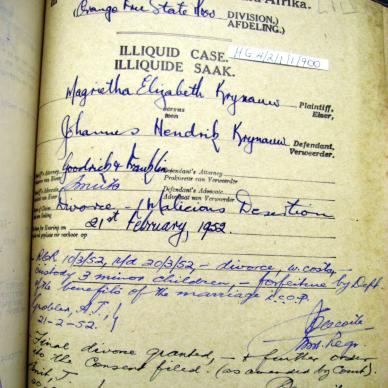 Afrika.
(Orange Free State
DIVISION.)
AFDELING.)
ILLIQUID CASE.
ILLIQUIDE SAAK.
HG 4/2/1/1/900
Magrietha Elizabeth Krynauw
Plaintiff.
Eiser,
versus
teen
Johannes Hendrik Krynauw
Defendant.
Verweerder.
Goodrick & Franklin
Defendant's Attorney
Prokureur van Verweerder
Smuts
Defendant's Advocate.
Advokaat van Verweerder
Divorce - Malicious Desertion
21st February, 1952.
RCR 10/3/52, r/d 20/3/52 - divorce, w. costs,
custody 3 minor children, - forfeiture by Deft.
of the benefits of the marriage
Grobler, A.J.
21-2-52.
Final divorce granted, - & further order
to the Consent filed. (as amended by Court).